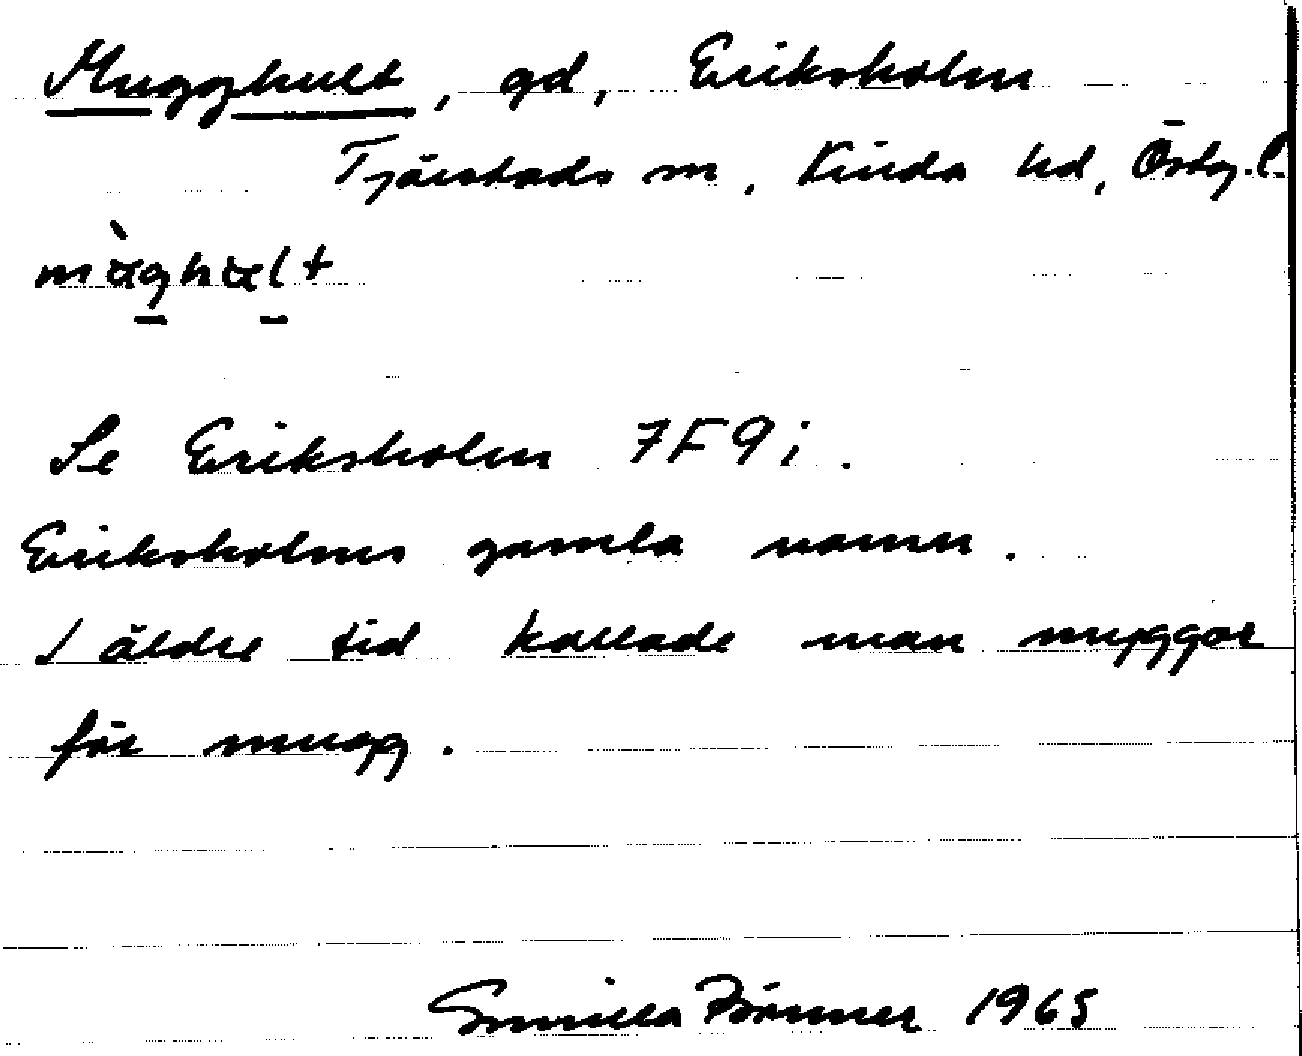 Mugghult, gd, Eriksholm
Tjärstads sn, Kinda hd, Östg.l.
Se Eriksholm 7F9i.
Eriksholms gamla namn.
I äldre tid kallade man myggor
för mugg.
Gunilla 1965